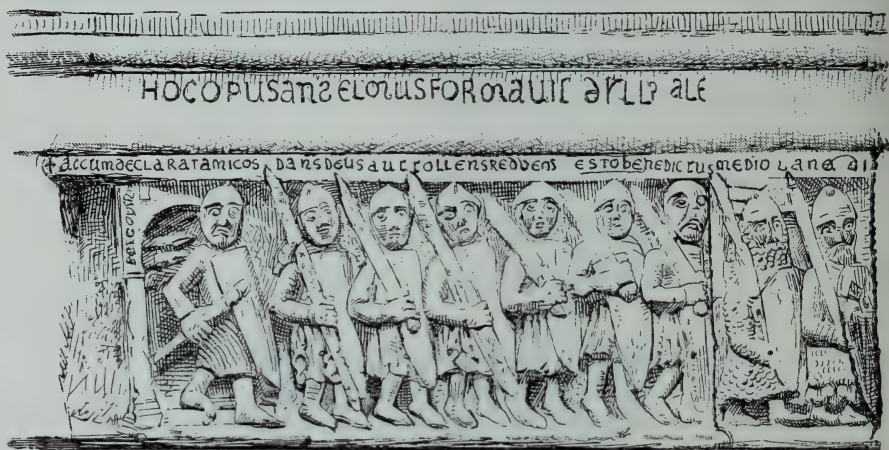 HOCOPUSANSELMUSFORMAUIT ALE
+ ACCUMDECLARATAMICOS DANSDEUSAUTTOLLENSREDDENS ESTOBENEDICTUSMEDIOLANE